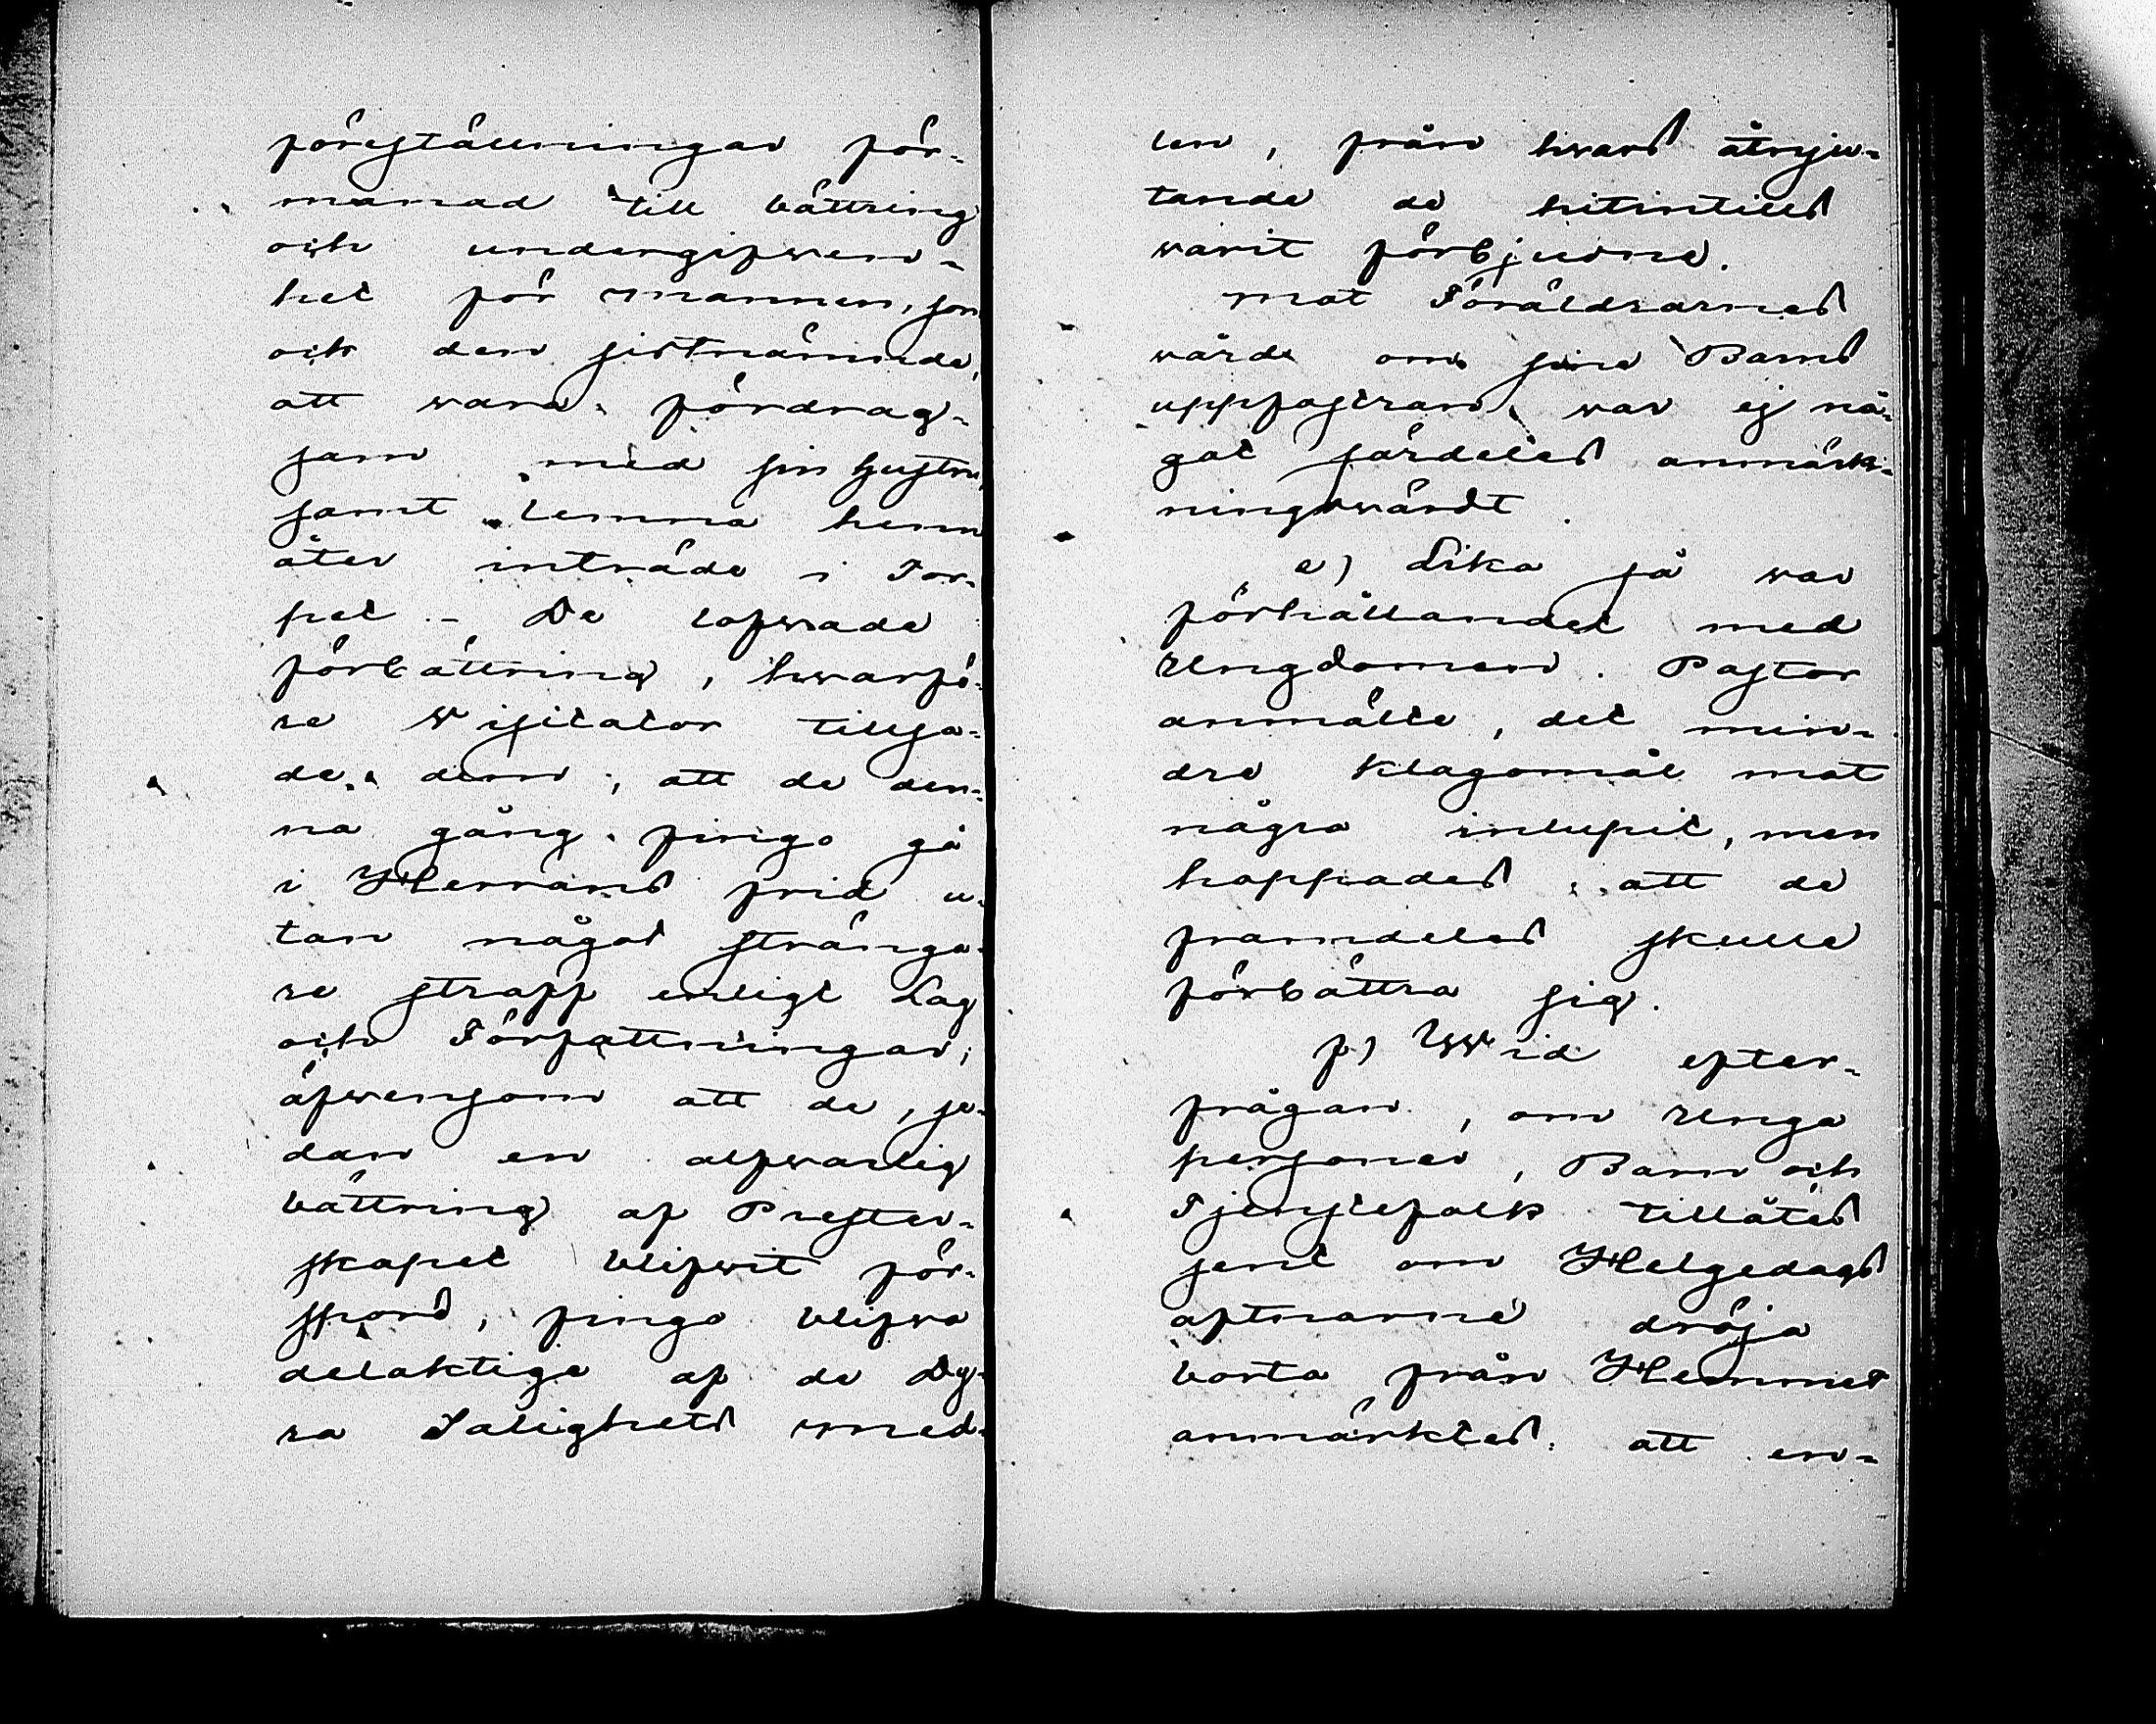 föreställningar för-
manad till bättring
och undergifwen-
het för mannen, som
och den sistnämnde,
att wara fördrag-
sam med sin hustru,
samt lemna henne
åter inträde i Tor-
pet. - De lofwade
förbättring, hwarfö-
re Visitator tillsa-
de dem, att de den-
na gång fingo gå
i Herrans frid u-
tan något stränga-
re straff enligt Lag
och Författningar;
äfwensom att de, se-
dan en alfwarlig
bättring af Prester-
skapet blifwit för-
spord, fingo blifwa
delaktige af de Dy-
ra Salighets med-
len, från hwars åtnju-
tande de hitintills
warit förbjudne.
Mot Föräldrarnes
wård om sine Barns
uppfostran war ej nå-
got särdeles anmärk-
ningswärdt.
e) Lika så war
förhållandet med
Ungdomen. Pastor
anmälte, det min-
dre klagomål mot
några inlupit, men
hoppades, att de
framdeles skulle
förbättra sig.
f) Wid efter-
frågan, om unga
personer, Barn och
Tjenstefolk tillåtes
sent om Helgedags
aftnarne dröja
borta från Hemmet
anmärktes, att en-